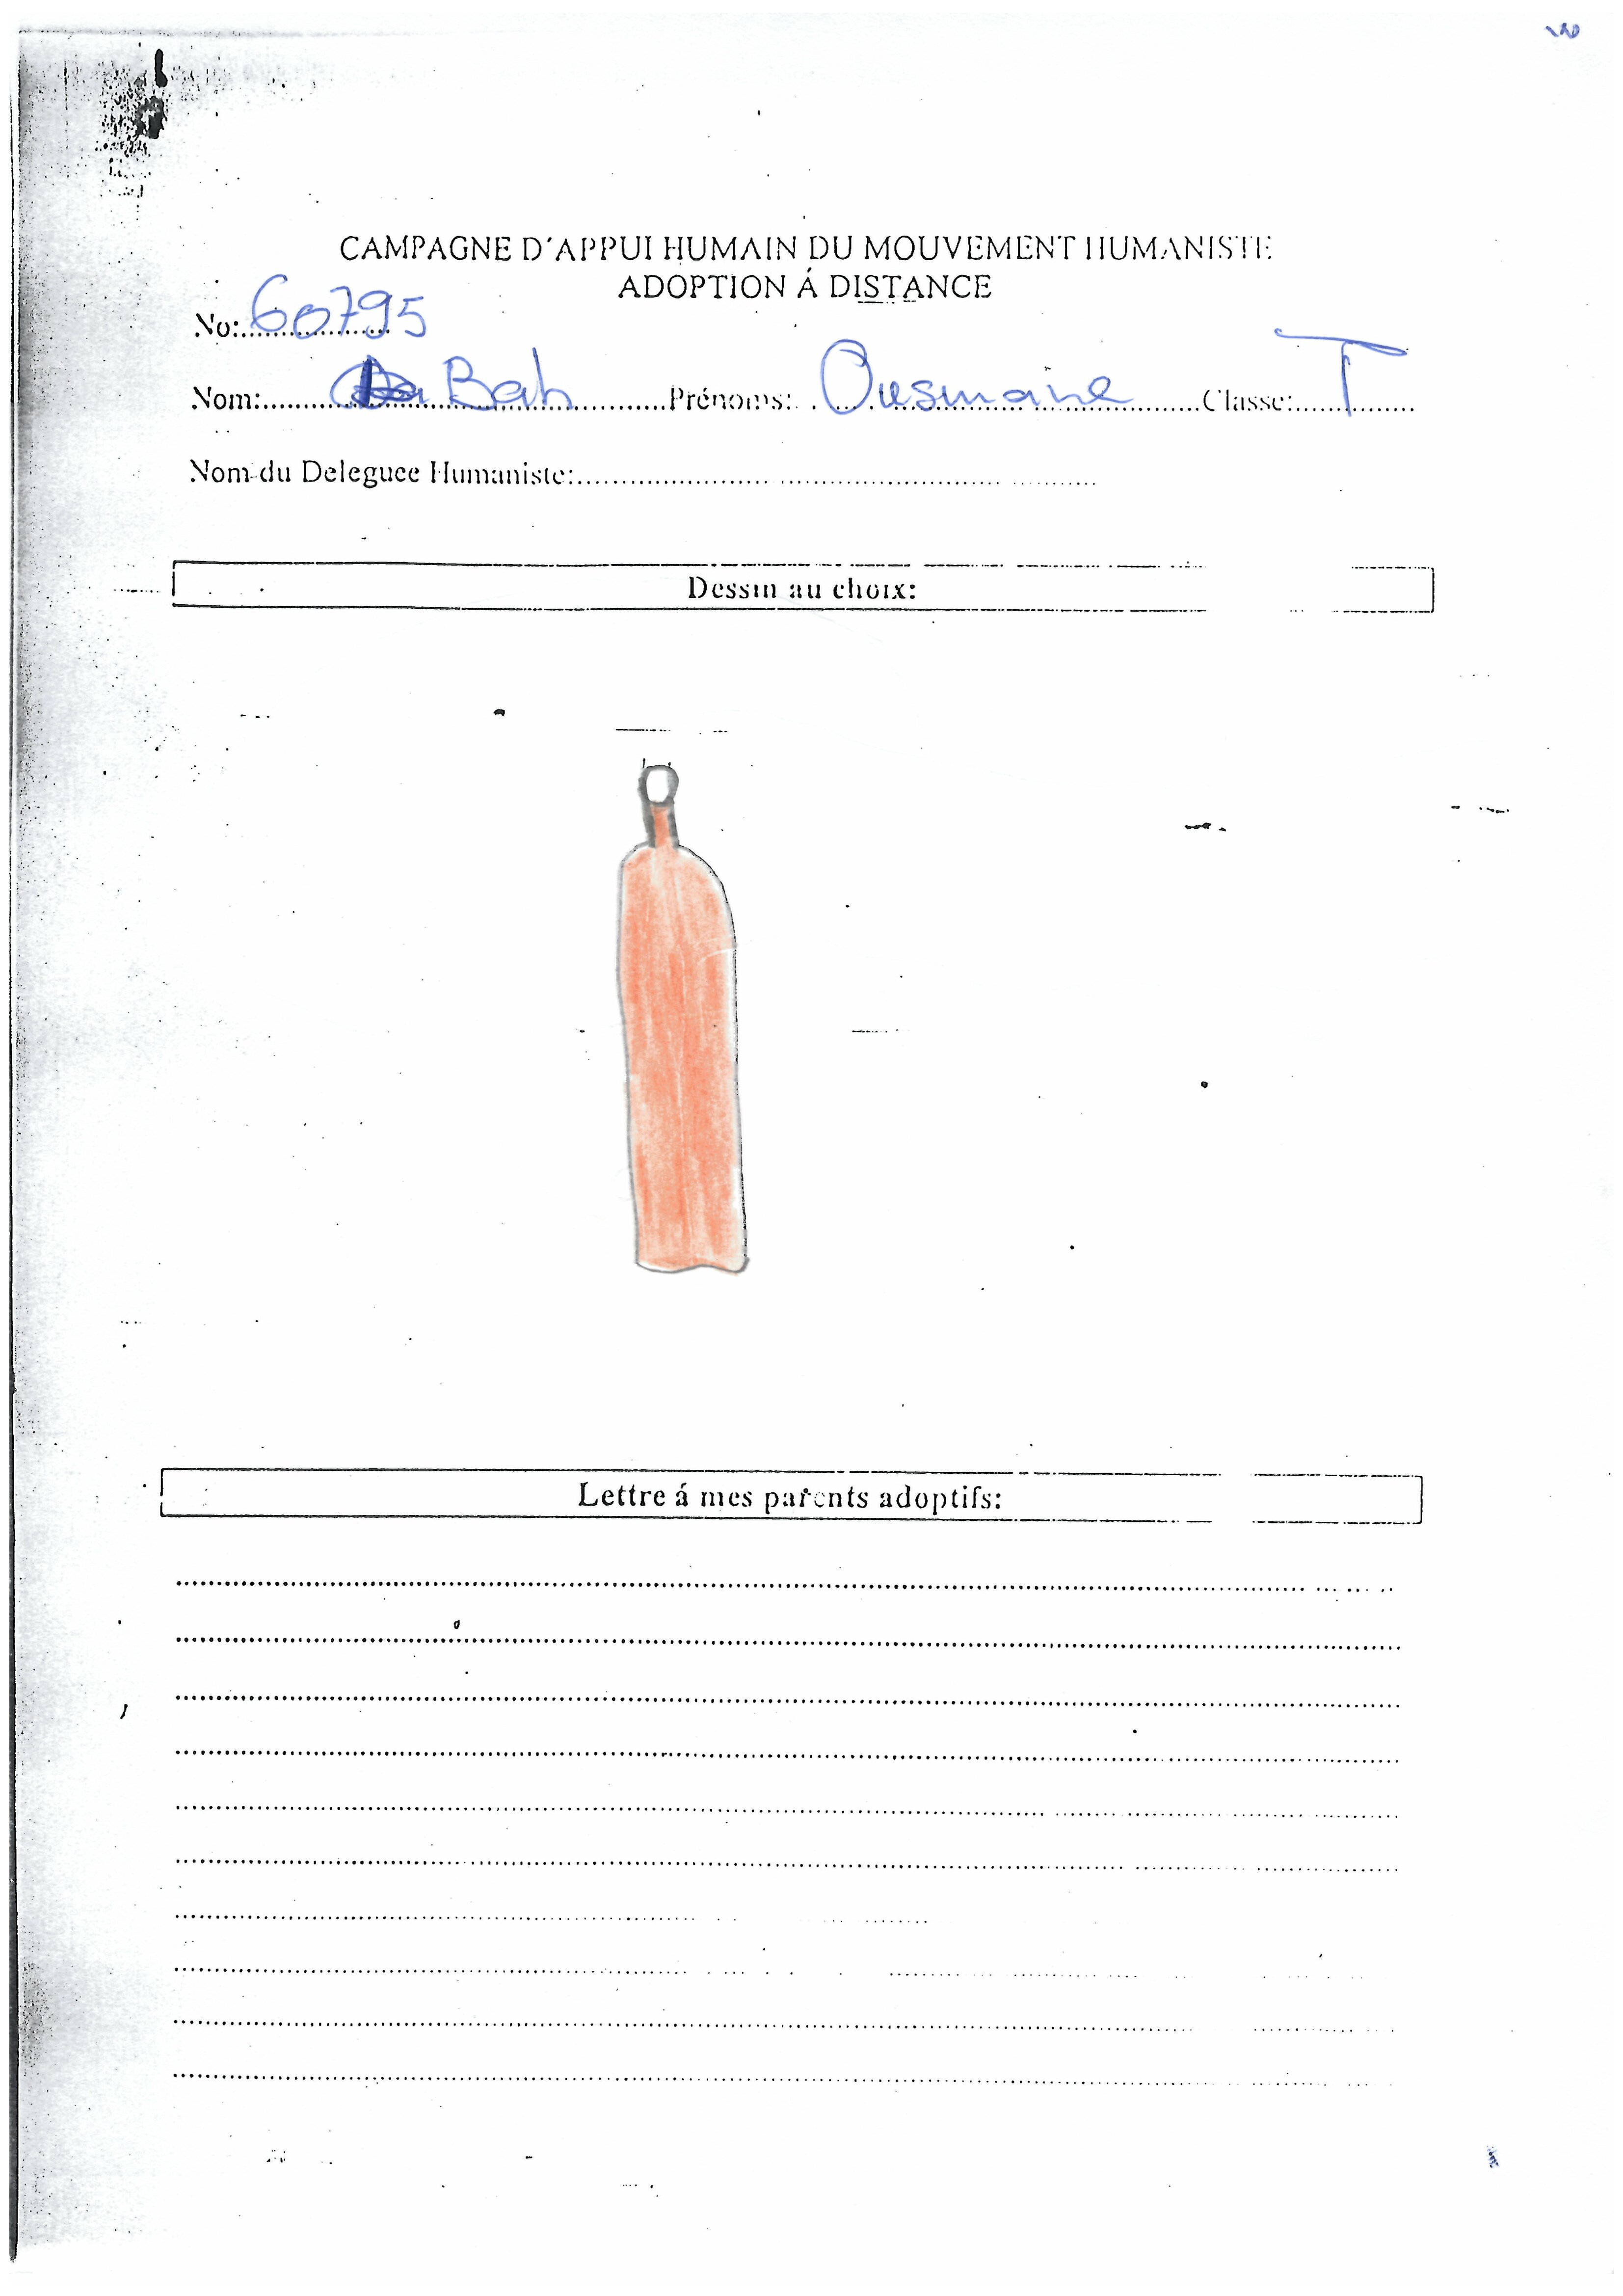 CAMPAGNE D'APPUI HUMAIN DU MOUVEMENT HUMANISTE
ADOPTION Á DISTANCE
No: 60795
Nom: Bah Prénoms: Ousmaine Classe: T
Nom du Deleguee Humaniste:
Dessin au choix:
Lettre á mes parents adoptifs: